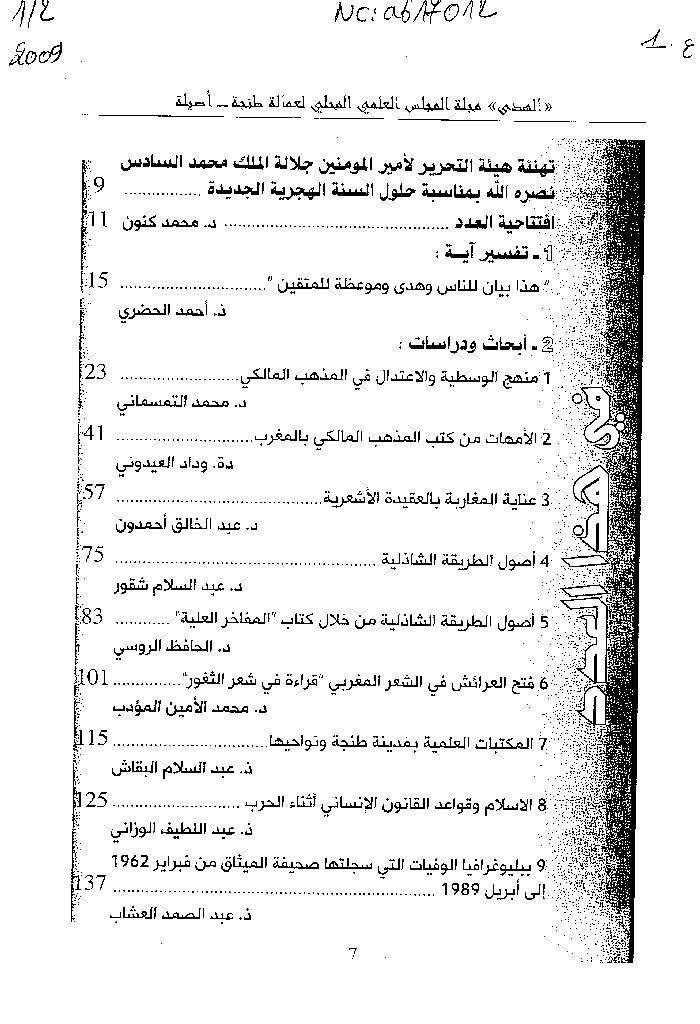 1/2
NC: ab17012
2009
1. ع
«الهدى» مجلة المجلس العلمي المحلي لعمالة طنجة – أصيلة
تهنئة هيئة التحرير لأمير المومنين جلالة الملك محمد السادس
نصره الله بمناسبة حلول السنة الهجرية الجديدة .............. 9
افتتاحية العدد ........................................ د. محمد كنون 11
1 - تفسير آيـة :
" هذا بيان للناس وهدى وموعظة للمتقين ".......................... 15
ذ. أحمد الحضري
2 - أبحاث ودراسات :
1 منهج الوسطية والاعتدال في المذهب المالكي..................... 23
د. محمد التمسماني
2 الأمهات من كتب المذهب المالكي بالمغرب........................ 41
دة. وداد العيدوني
3 عناية المغاربة بالعقيدة الأشعرية..................................... 57
د. عبد الخالق أحمدون
4 أصول الطريقة الشاذلية ............................................... 75
د. عبد السلام شقور
5 أصول الطريقة الشاذلية من خلال كتاب "المفاخر العلية" .......... 83
د. الحافظ الروسي
6 فتح العرائش في الشعر المغربي "قراءة في شعر الثغور"............ 101
د. محمد الأمين المؤدب
7 المكتبات العلمية بمدينة طنجة ونواحيها............................ 115
ذ. عبد السلام البقاش
8 الاسلام وقواعد القانون الإنساني أثناء الحرب ....................... 125
ذ. عبد اللطيف الوزاني
9 ببليوغرافيا الوفيات التي سجلتها صحيفة الميثاق من فبراير 1962
إلى أبريل 1989 ......................................................... 137
ذ. عبد الصمد العشاب
7